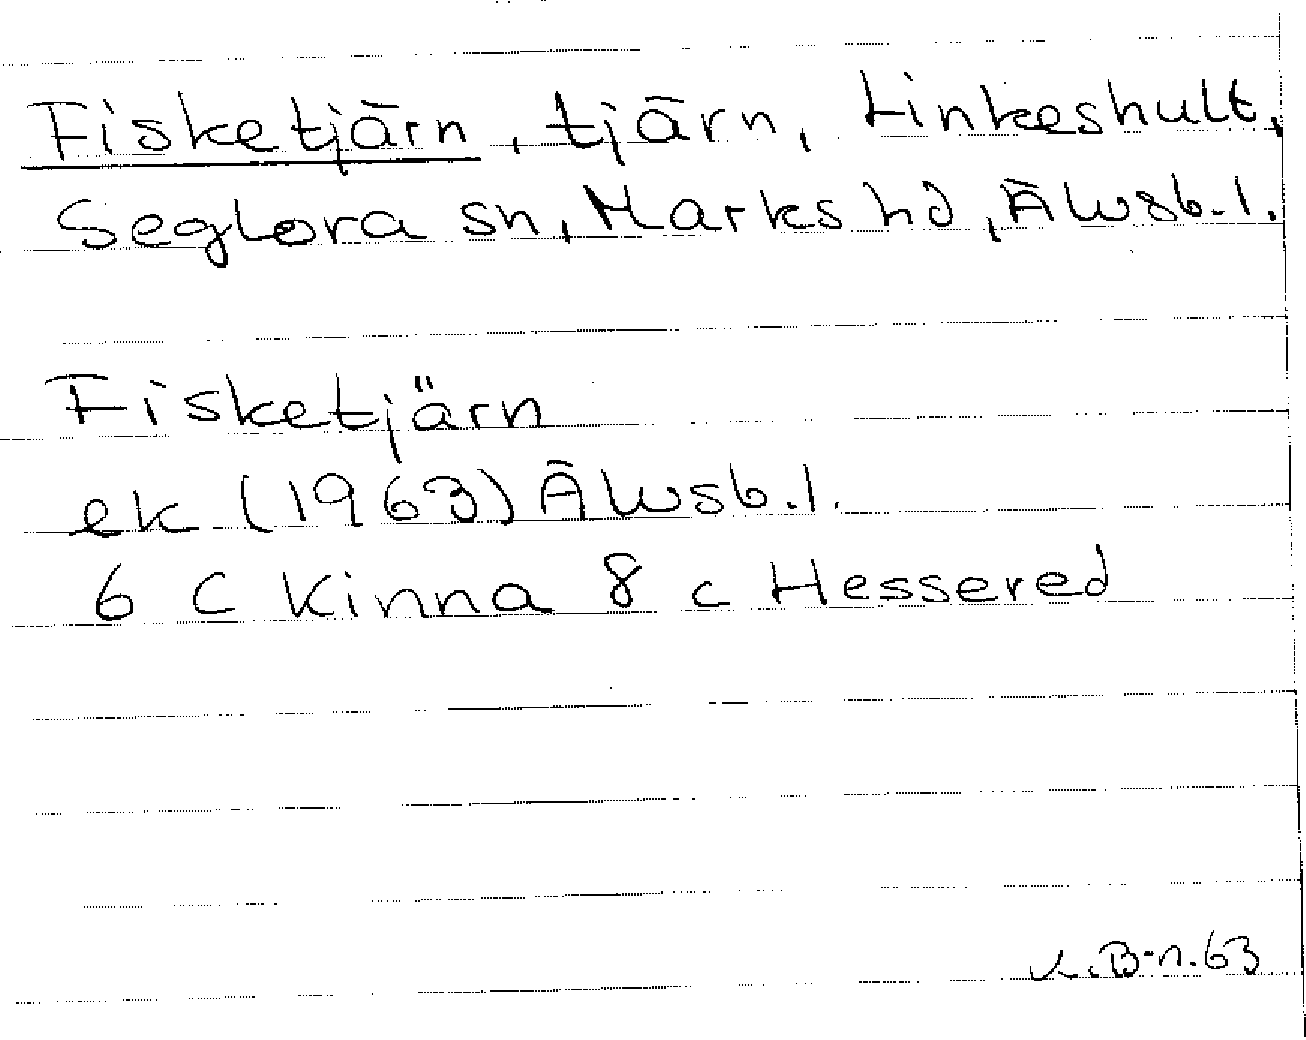 Fisketjärn, tjärn, Linkeshult,
Seglora sn, Marks hd, Älvsb. l.
Fisketjärn
ek (1963) Älvsb. l.
6 C Kinna 8 c Hessered
K. B-n. 63